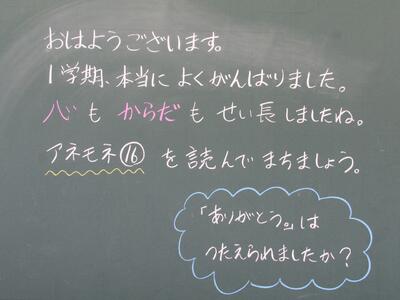 おはようございます。
1学期、本当に よくがんばりました。
心も からだも せい長しましたね。
アネモネ⑯ を読んで まちましょう。
「ありがとう。」は
つたえられましたか？